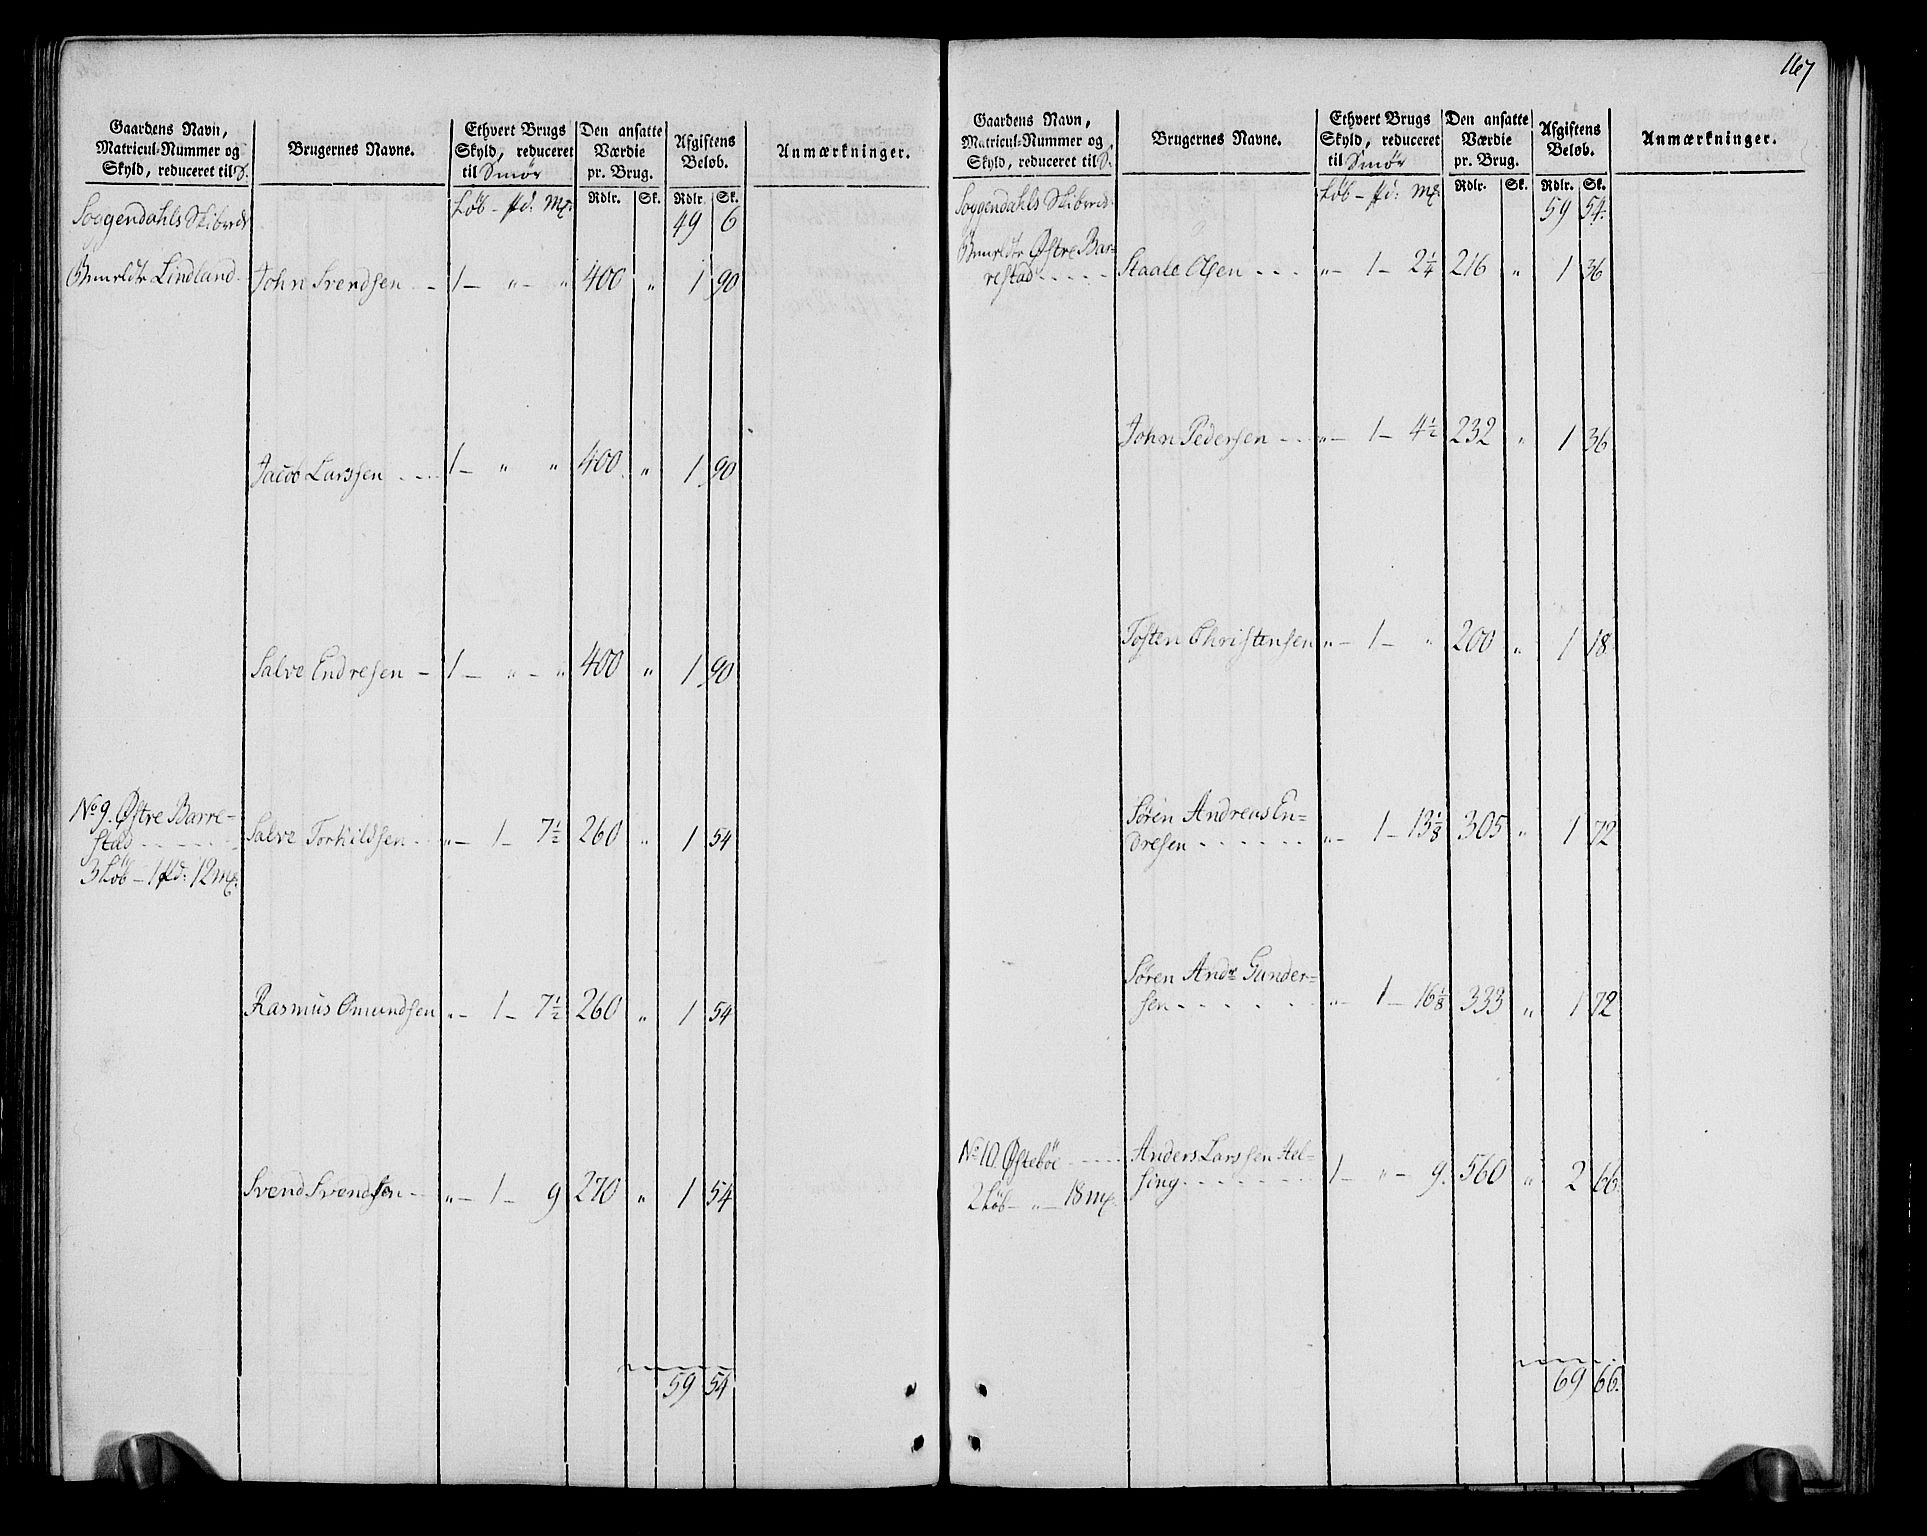 167
Gaardens Navn,
Matricul-Nummer og
Skyld, reduceret til S.
Brugernes Navne.
Ethvert Brugs
Skyld, reduceret
til Smør
Den ansatte
Værdie
pr. Brug.
Afgiftens
Beløb.
Anmærkninger.
Løb - pd: mk:
Rdlr. Sk. Rdlr. Sk.
Soggendahls Skibred 49 6
Lindland. John Svendsen 1 - " - " 400 " 1 90
Jacob Larssen 1 - " " 400 " 1 90
Salve Endresen - 1 - " - " 400 " 1 90
No 9. Østre Barre-
stad
3 Løb - 1 pd: 12 mk.
Salve Torkildsen " - 1 - 7½ 260 " 1 54
Rasmus Omundsen " - 1 - 7½ 260 " 1 54
Svend Svendsen " - 1 - 9 270 " 1 54
59 54
Gaardens Navn,
Matricul-Nummer og
Skyld, reduceret til S.
Brugernes Navne.
Ethvert Brugs
Skyld, reduceret
til Smør
Den ansatte
Værdie
pr. Brug.
Afgiftens
Beløb.
Anmærkninger.
Løb - pd: mk
Rdlr. Sk. Rdlr. Sk.
Soggendahls Skibred. 59 54.
Østre Bar=
restad
Staale Olsen " - 1 - 2¼ 216 " 1 36
John Pedersen " - 1 - 4½ 232 " 1 36
Tosten Christensen " - 1 - " 200 " 1 18
Søren Andreas En=
dresen " - 1 - 13⅛ 305 " 1 72
Søren Andr Gunder-
sen " - 1 - 16⅛ 333 " 1 72
No 10. Østebøe
2 Løb - " - 18 mk.
Anders Larssen Hel-
sing 1 - " - 9. 560 " 2 66
69 66.